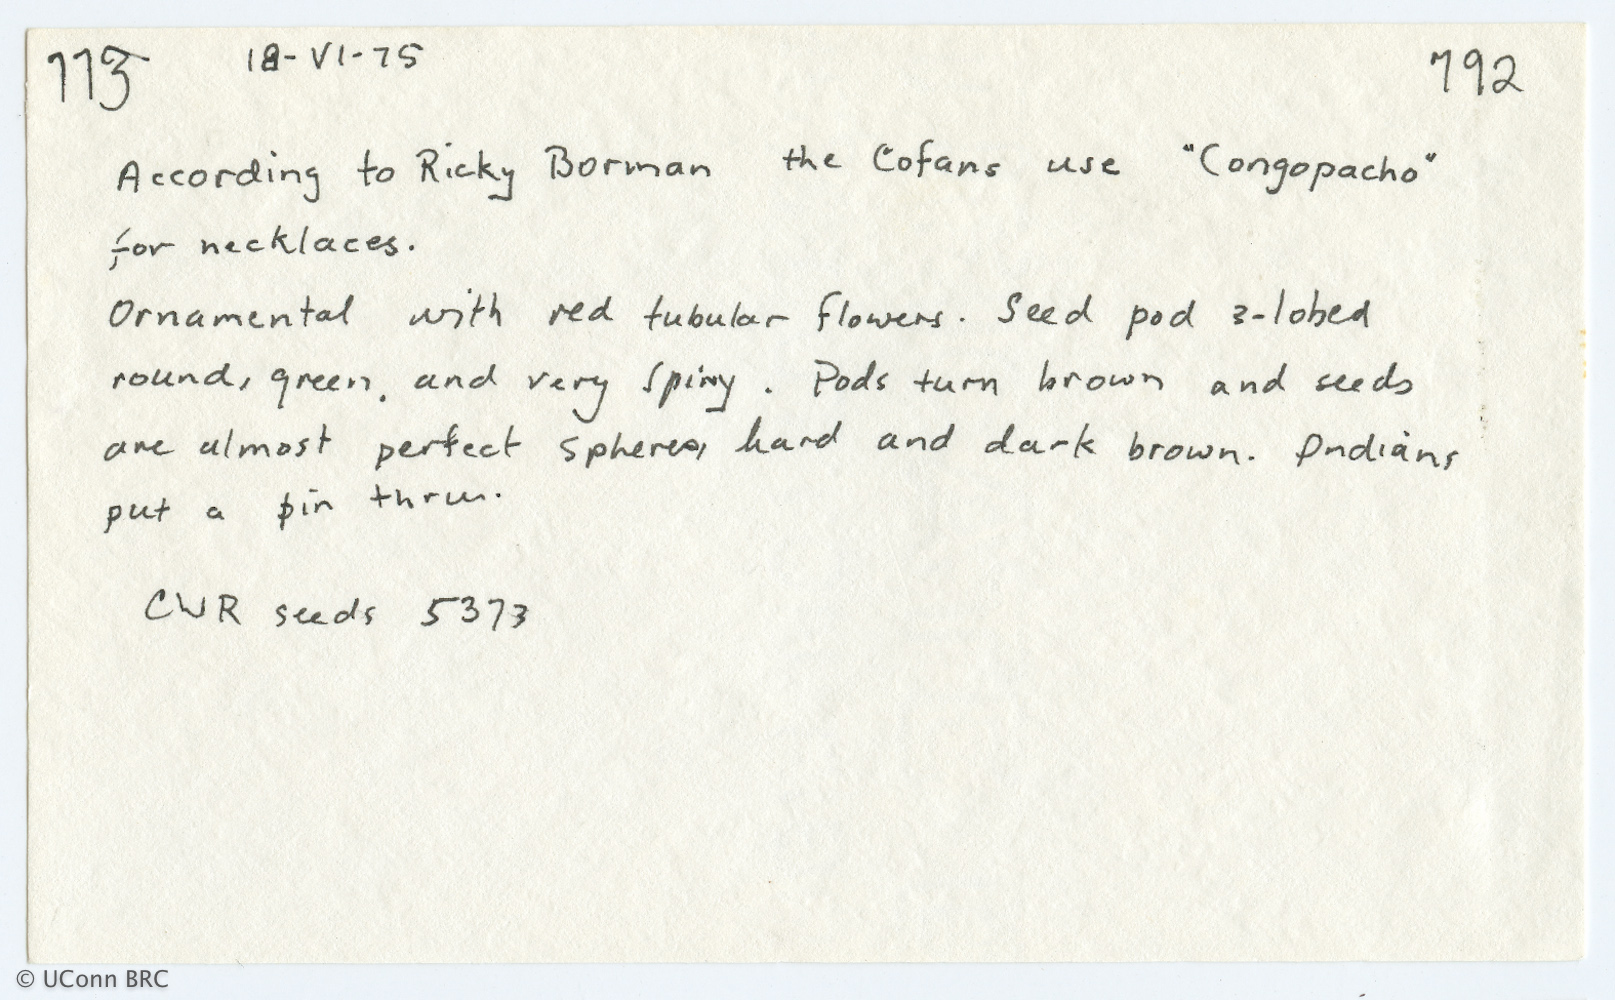 113 18-VI-75 792
According to Ricky Borman the Cofans use "Congopacho"
for necklaces.
Ornamental with red tubular flowers. Seed pod 3-lobed
round, green, and very spiny. Pods turn brown and seeds
are almost perfect spheres, hard and dark brown. Indians
put a pin thru.
CWR seeds 5373
© UConn BRC